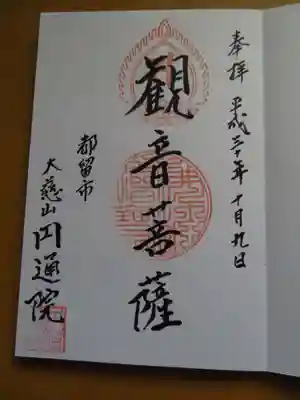 奉拝 平成三十年十月九日
観音菩薩
都留市
大慈山円通院